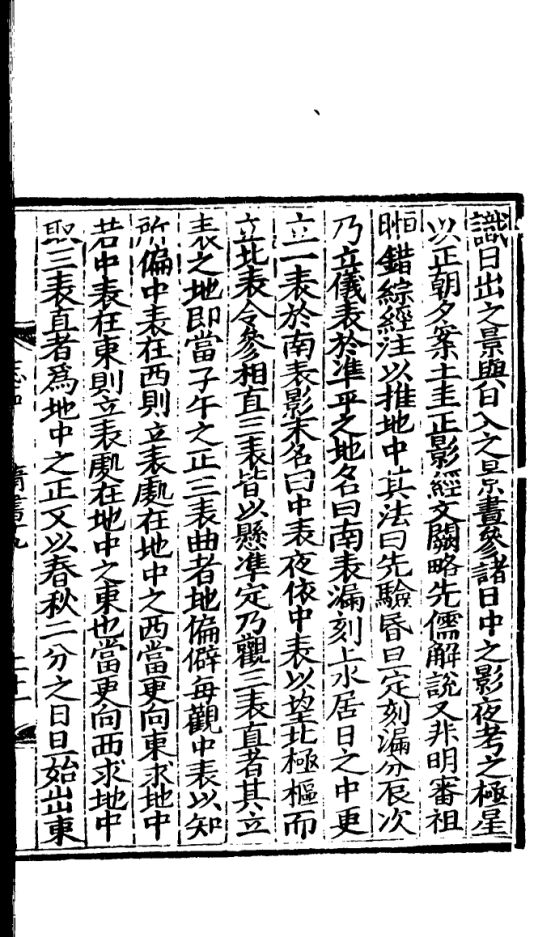 識日出之景與日入之景晝參諸日中之影夜考之極星
以正朝夕案土圭正影經文闕略先儒解說又非明審祖
暅錯綜經注以推地中其法曰先驗昏旦定刻漏分辰次
乃立儀表於準平之地名曰南表漏刻上水居日之中更
立一表於南表影末名曰中表夜依中表以望北極樞而
立北表令參相直三表皆以懸準定乃觀三表直者其立
表之地即當子午之正三表曲者地偏僻每觀中表以知
所偏中表在西則立表處在地中之西當更向東求地中
若中表在東則立表處在地中之東也當更向西求地中
取三表直者爲地中之正又以春秋二分之日旦始出東